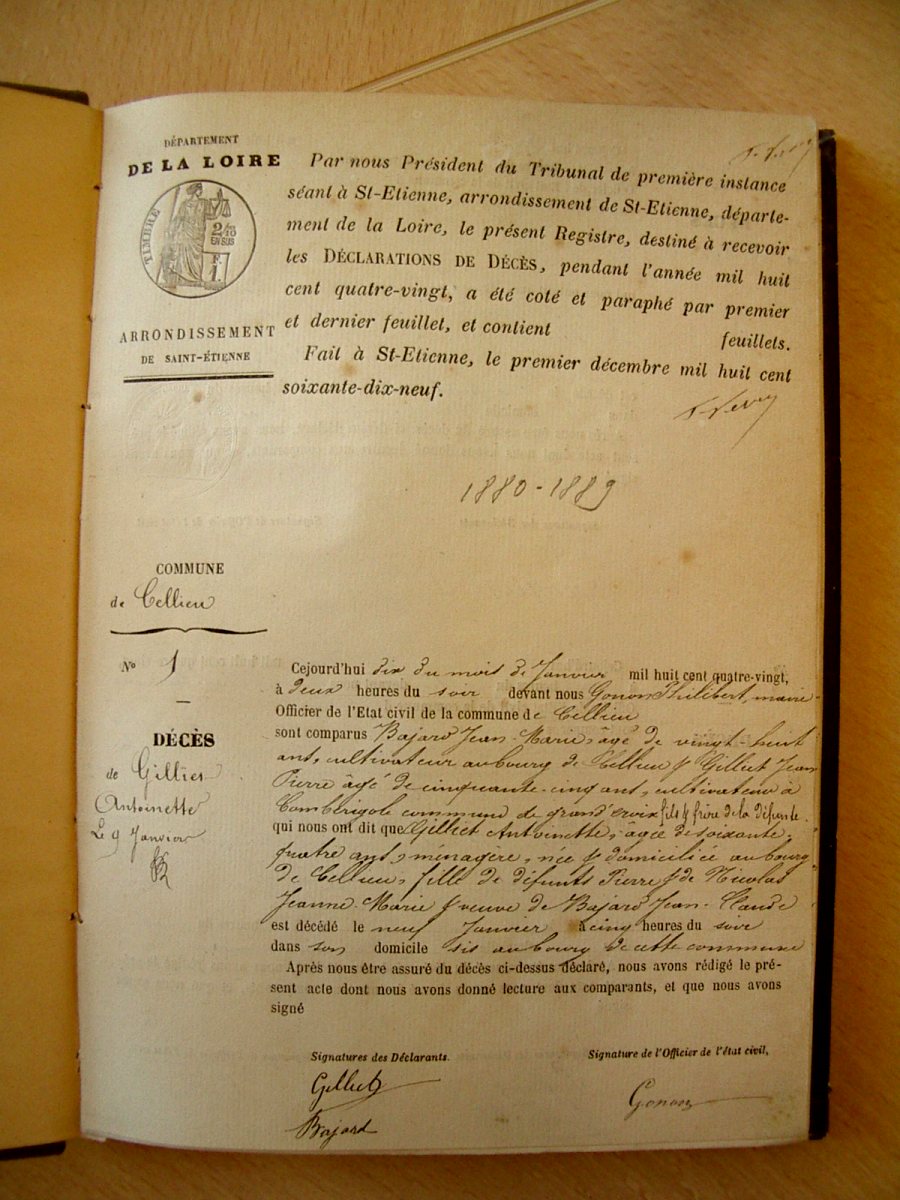 DÉPARTEMENT
DE LA LOIRE
TIMBRE
2/10
EN SUS
F.
1.
ARRONDISSEMENT
DE SAINT-ÉTIENNE
Par nous Président du Tribunal de première instance
séant à St-Etienne, arrondissement de St-Etienne, départe-
ment de la Loire, le présent Registre, destiné à recevoir
les DÉCLARATIONS DE DÉCÈS, pendant l'année mil huit
cent quatre-vingt, a été coté et paraphé par premier
et dernier feuillet, et contient feuillets.
Fait à St-Etienne, le premier décembre mil huit cent
soixante-dix-neuf.
1880-1889
COMMUNE
de Cellieu
No 1
DÉCÈS
de Gilliet
Antoinette
Le 9 Janvier
Cejourd'hui dix du mois de Janvier mil huit cent quatre-vingt,
à deux heures du soir devant nous Gonon Philibert, maire
Officier de l'Etat civil de la commune de Cellieu
sont comparus Bajard Jean-Marie, âgé de vingt-huit
ans, cultivateur au bourg de Cellieu & Gilliet Jean
Pierre âgé de cinquante-cinq ans, cultivateur à
Combérigole commune de grand'croix fils & frère de la défunte
qui nous ont dit que Gilliet Antoinette, âgée de soixante-
quatre ans, ménagère, née & domiciliée au bourg
de Cellieu, fille de défunts Pierre & de Nicolas
Jeanne-Marie & veuve de Bajard Jean-Claude
est décédé le neuf Janvier à cinq heures du soir
dans son domicile sis au bourg de cette commune
Après nous être assuré du décès ci-dessus déclaré, nous avons rédigé le pré-
sent acte dont nous avons donné lecture aux comparants, et que nous avons
signé
Signatures des Déclarants.
Signature de l'Officier de l'état civil,
Gilliet
Gonon
Bajard